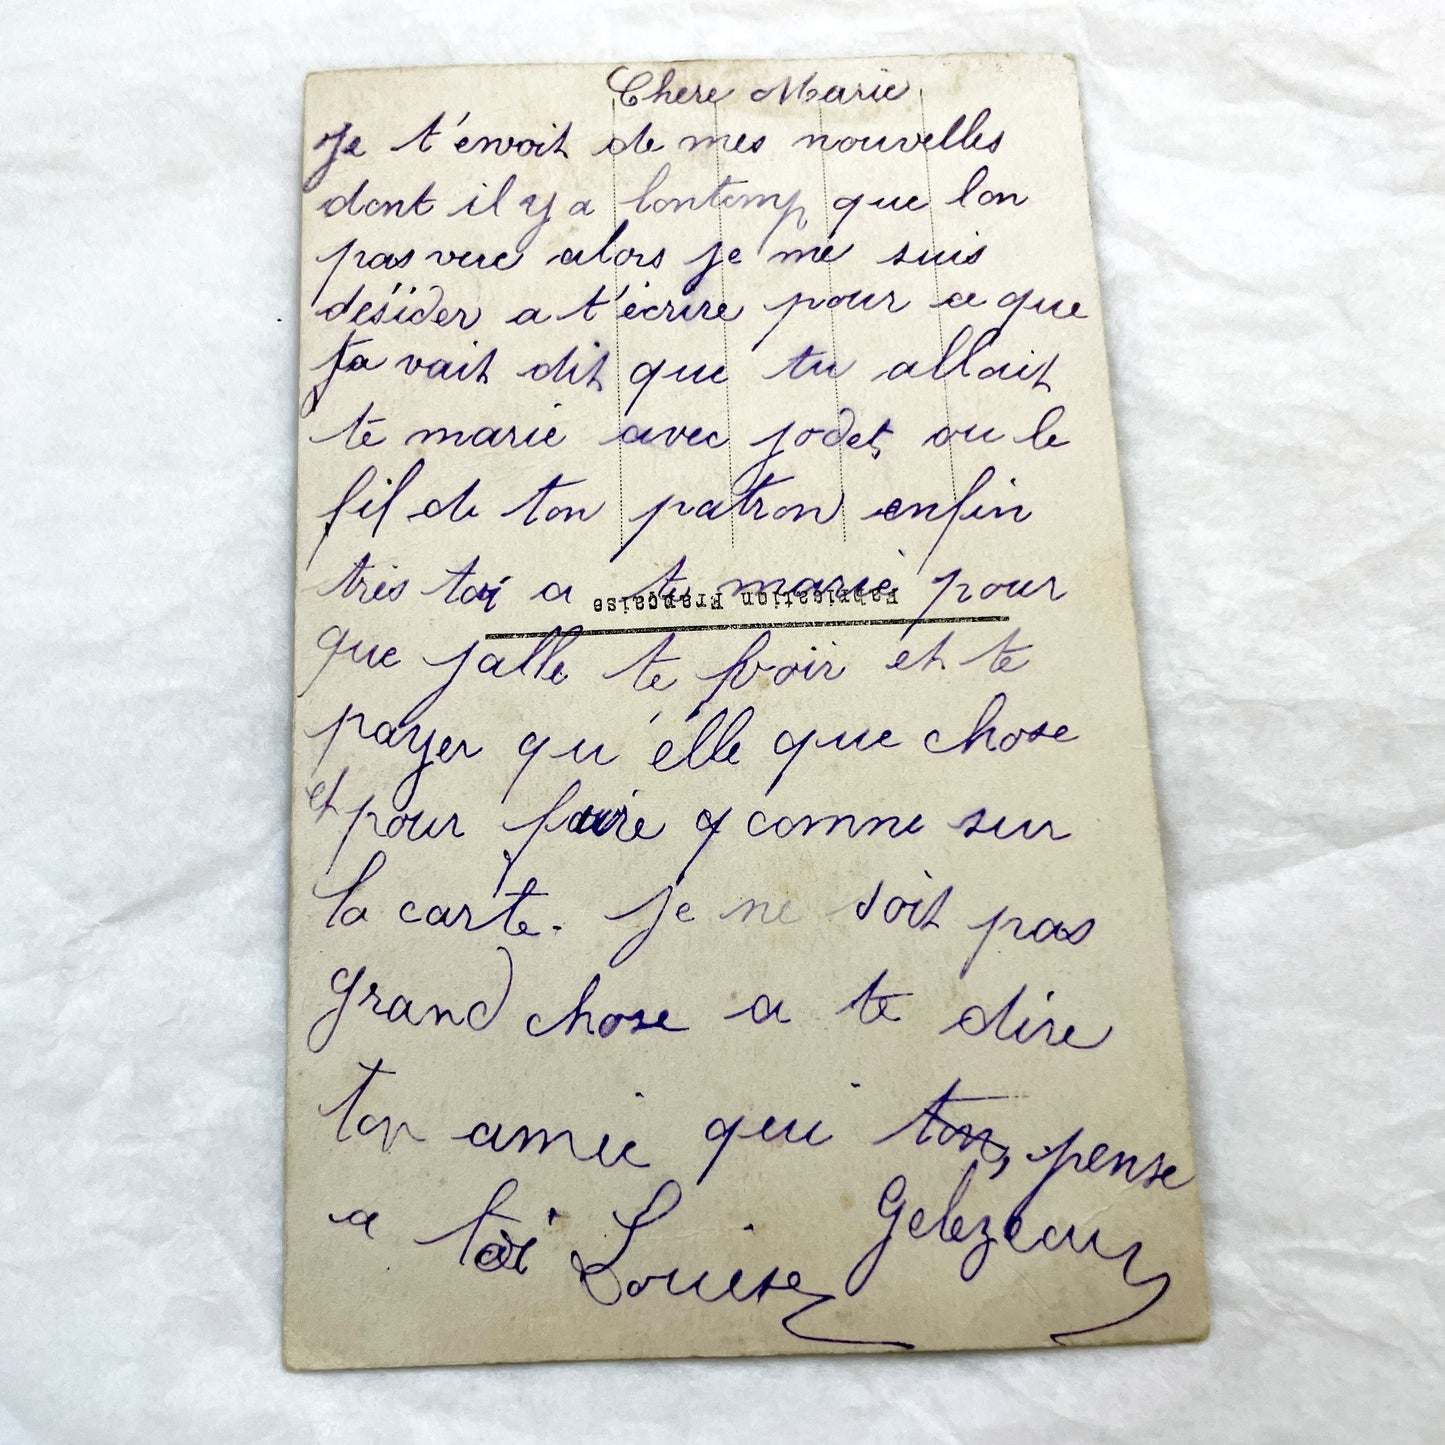 Chere Marie
Je t'envoit de mes nouvelles
dont il y a lontemp que lon
pas vue alors je me suis
desider a t'écrire pour ce que
ta vait dit que tu allait
te marié avec jodet ou le
fil de ton patron enfin
tres toi a te marié pour
Fabrication Française
que jalle te voir et te
payer qu'élle que chose
et pour faire comme sur
la carte. Je ne soit pas
grand chose a te dire
ton amie qui ton, pense
a toi Louise Gelezeau